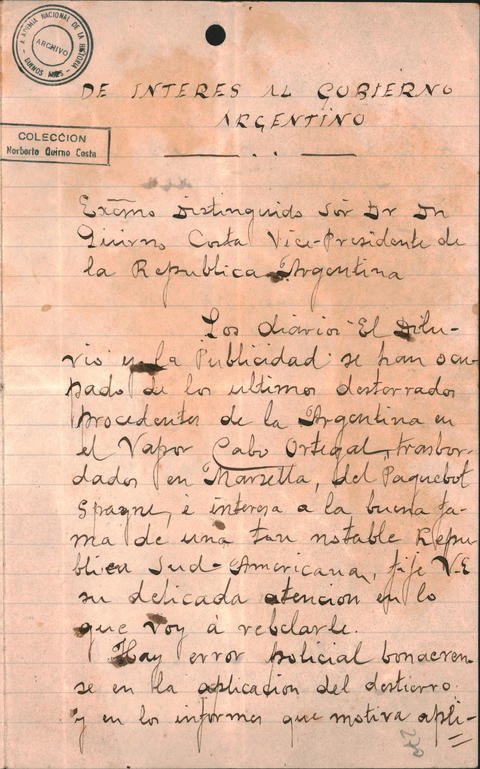 ACADEMIA NACIONAL DE LA HISTORIA
ARCHIVO
BUENOS AIRES
DE INTERES AL GOBIERNO
ARGENTINO
COLECCION
Norberto Quirno Costa
Excmo Distinguido Sór Dr Dn
Quirno Costa Vice-Presidente de
la Republica Argentina
Los diarios El Dilu-
vio y la Publicidad se han ocu-
pado de los ultimos desterrados
procedentes de la Argentina en
el Vapor Cabo Ortegal, trasbor-
dados en Marsella, del Paquebot
Spagne, é interesa a la buena fa-
ma de una tan notable Repu-
blica Sud-Americana, fije V.E
su delicada atencion en lo
que voy á rebelarle.
Hay error policial bonaeren-
se en la aplicacion del destierro
y en los informes que motiva apli-